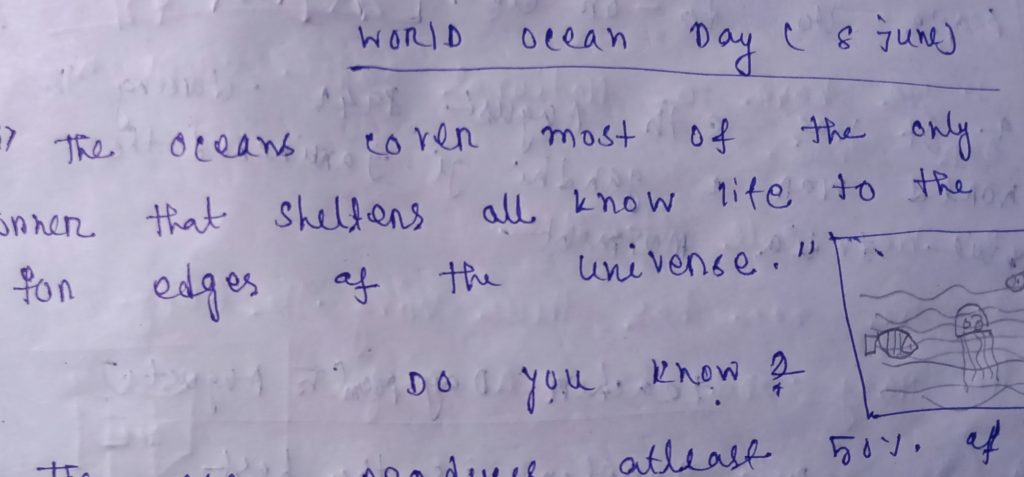 WORLD Ocean Day ( 8 june)
The oceans coven most of the only
that sheltens all know life to the
fon edges of the univense."
DO you know ?
produces atleast 50%. of